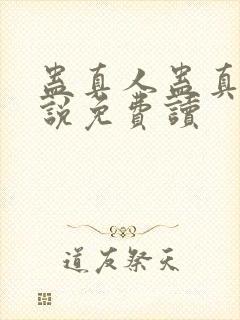 蛊真人蛊真
說免費讀
道友祭天